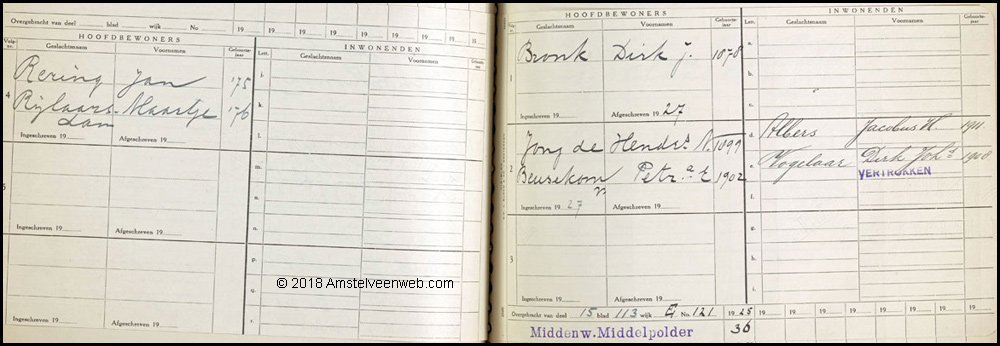 Overgebracht van deel blad wijk No. 19 19 19 19 19 19 19 19
HOOFDBEWONERS
INWONENDEN
Volg-nr. Geslachtsnaam Voornamen Geboorte-jaar Lett. Geslachtsnaam Voornamen
4 Rering Jan '75 i.
Rijlaars- Maartje '76 k.
dam
Ingeschreven 19 Afgeschreven 19 l.
m.
5
n.
Ingeschreven 19 Afgeschreven 19 o.
p.
q.
Ingeschreven 19 Afgeschreven 19 r.
© 2018 Amstelveenweb.com
HOOFDBEWONERS
INWONENDEN
Geslachtsnaam Voornamen Geboorte-jaar Lett. Geslachtsnaam Voornamen Geboorte-jaar
1 Bronk Dirk J. 1878 a.
b.
Ingeschreven 19 Afgeschreven 19 27 c.
2 Jong de Hendr. N. 1899 d. Albers Jacobus H. 1911
Beusekom v Petr.a E 1902 e. Vogelaar Dirk Joh.s 1900
VERTROKKEN
Ingeschreven 19 27 Afgeschreven 19 f.
g.
3 h.
Ingeschreven 19 Afgeschreven 19
Overgebracht van deel 15 blad 113 wijk G No. 121 19 25 19 19 19 19 19 19 19
Middenw. Middelpolder 36